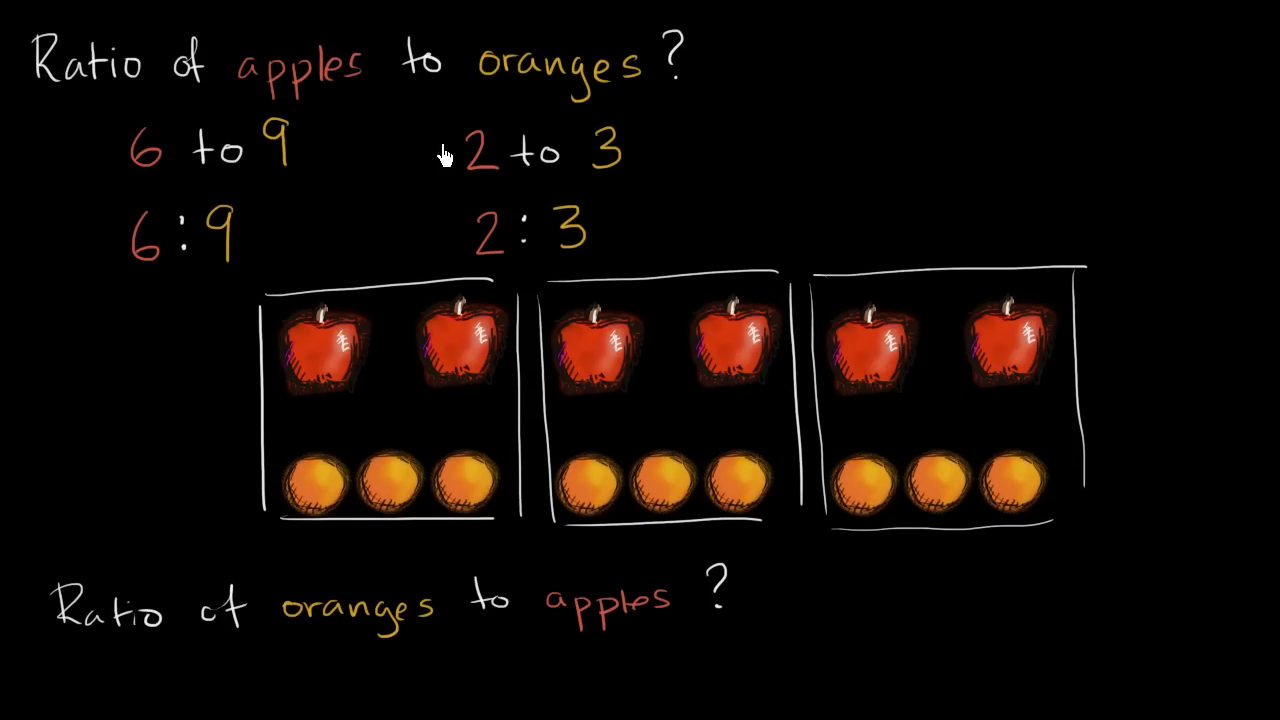 Ratio of apples to oranges?
6 to 9 2 to 3
6:9 2:3
Ratio of oranges to apples?